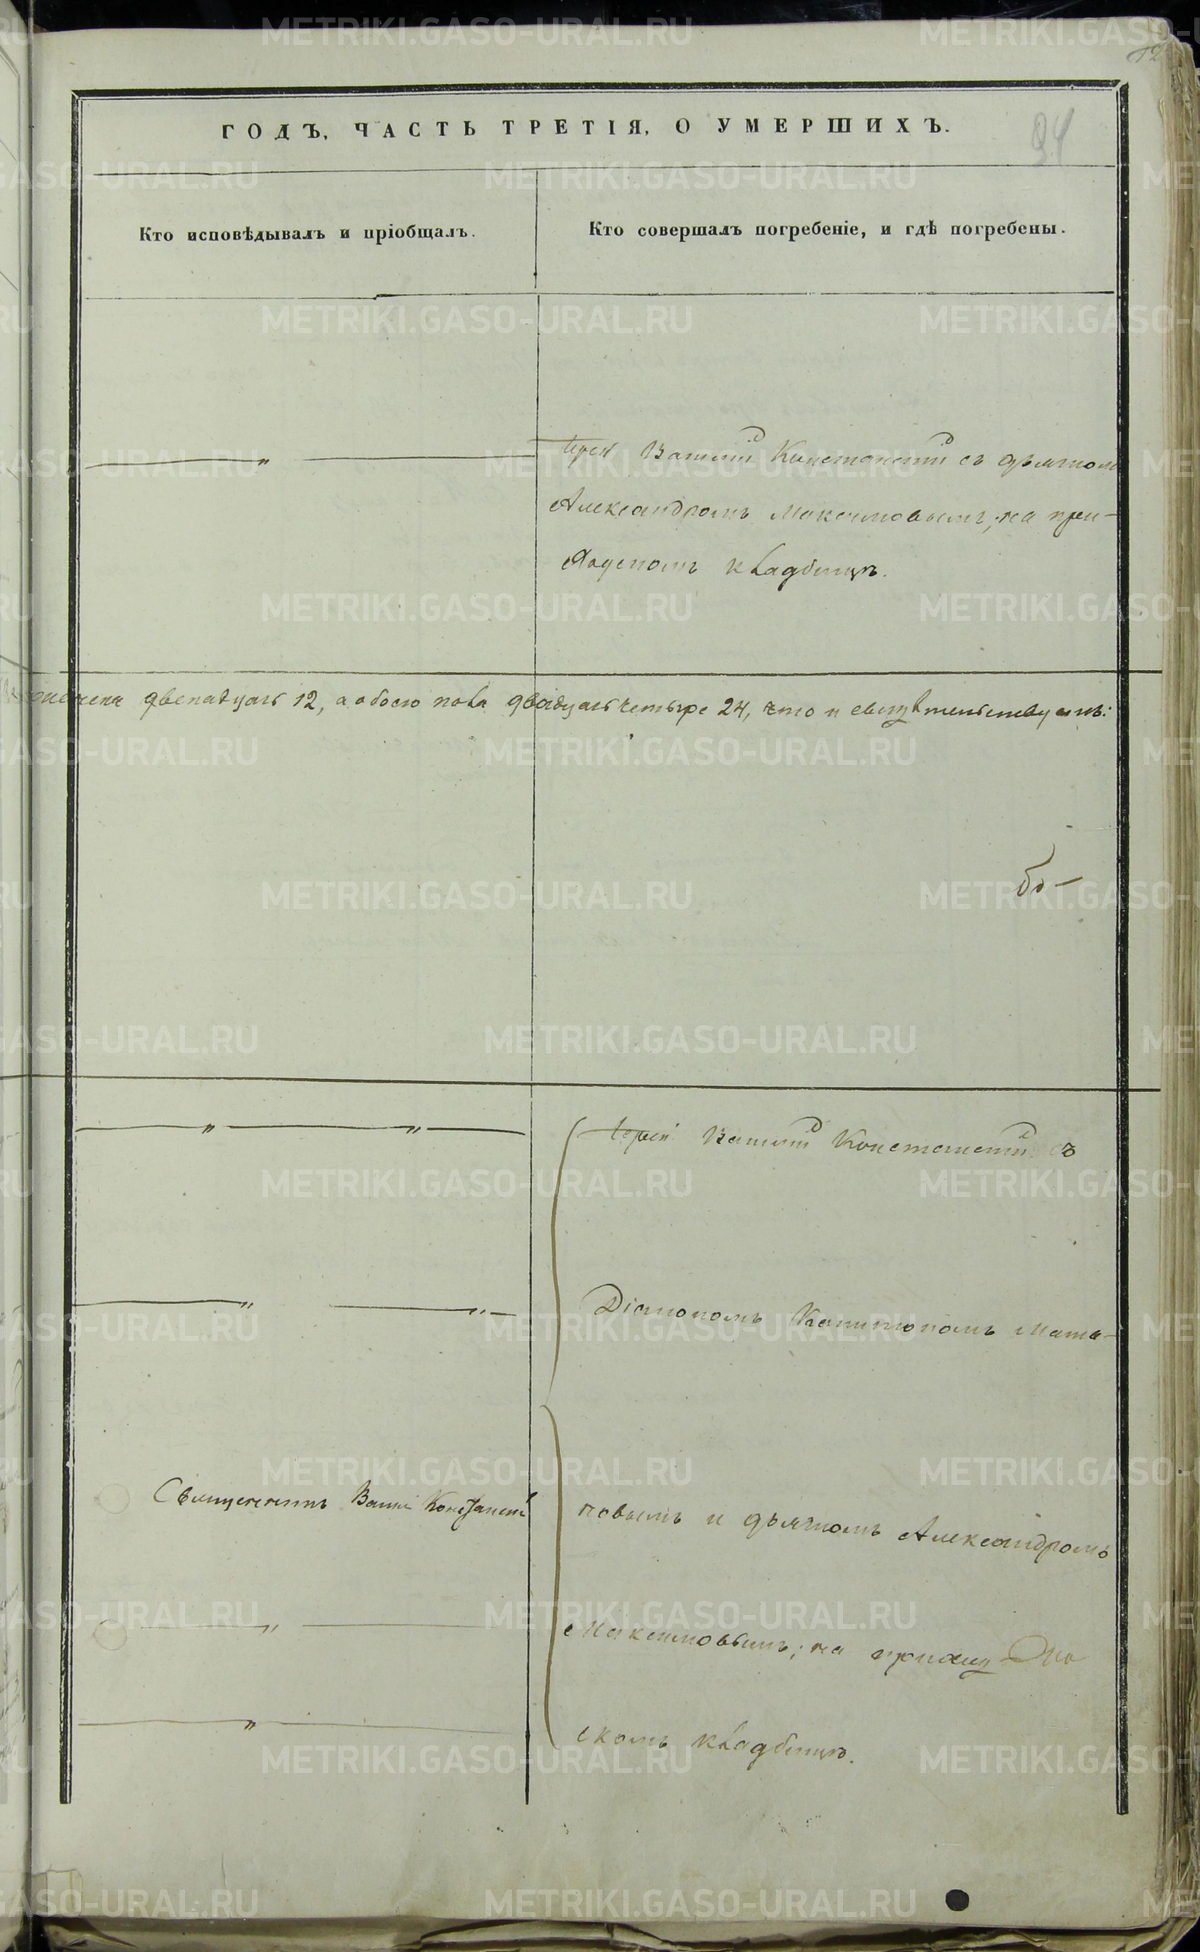 12
ГОДЪ, ЧАСТЬ ТРЕТІЯ, О УМЕРШИХЪ.
94
Кто исповѣдывалъ и пріобщалъ.
Кто совершалъ погребеніе, и гдѣ погребены.
Іерей Василій Констанскій съ дьячкомъ
Александромъ Максимовымъ; на при-
ходскомъ кладбищѣ.
двенадцать 12, а обоего пола двадцать четыре 24, что и свидѣтельствуемъ:
Іерей Василій Констанскій съ
Діакономъ Капитономъ
Священникъ
и дьячкомъ Александромъ
Максимовымъ; на приход
скомъ кладбищѣ.
METRIKI.GASO-URAL.RU